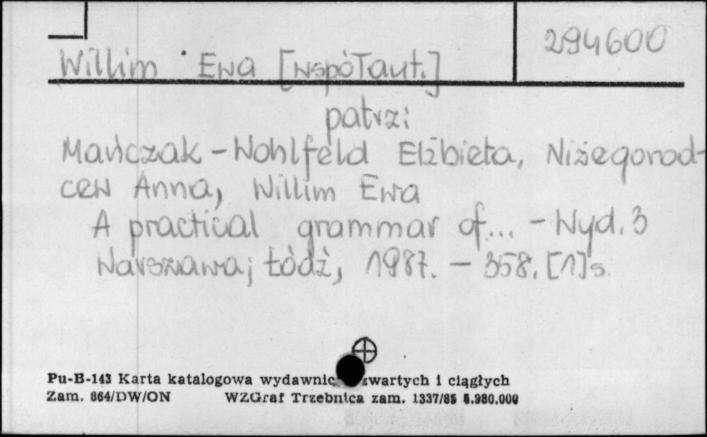 294600
Willim Ewa [współaut.]
patrz:
Mańczak-Wohlfeld Elżbieta, Niżegorod-
cew Anna, Willim Ewa
A practical grammar of... - Wyd. 3
Warszawa; Łódź, 1987. - 358, [1] s.
Pu-B-143 Karta katalogowa wydawnic zwartych i ciągłych
Zam. 864/DW/ON WZGraf Trzebnica zam. 1337/85 5.980.000